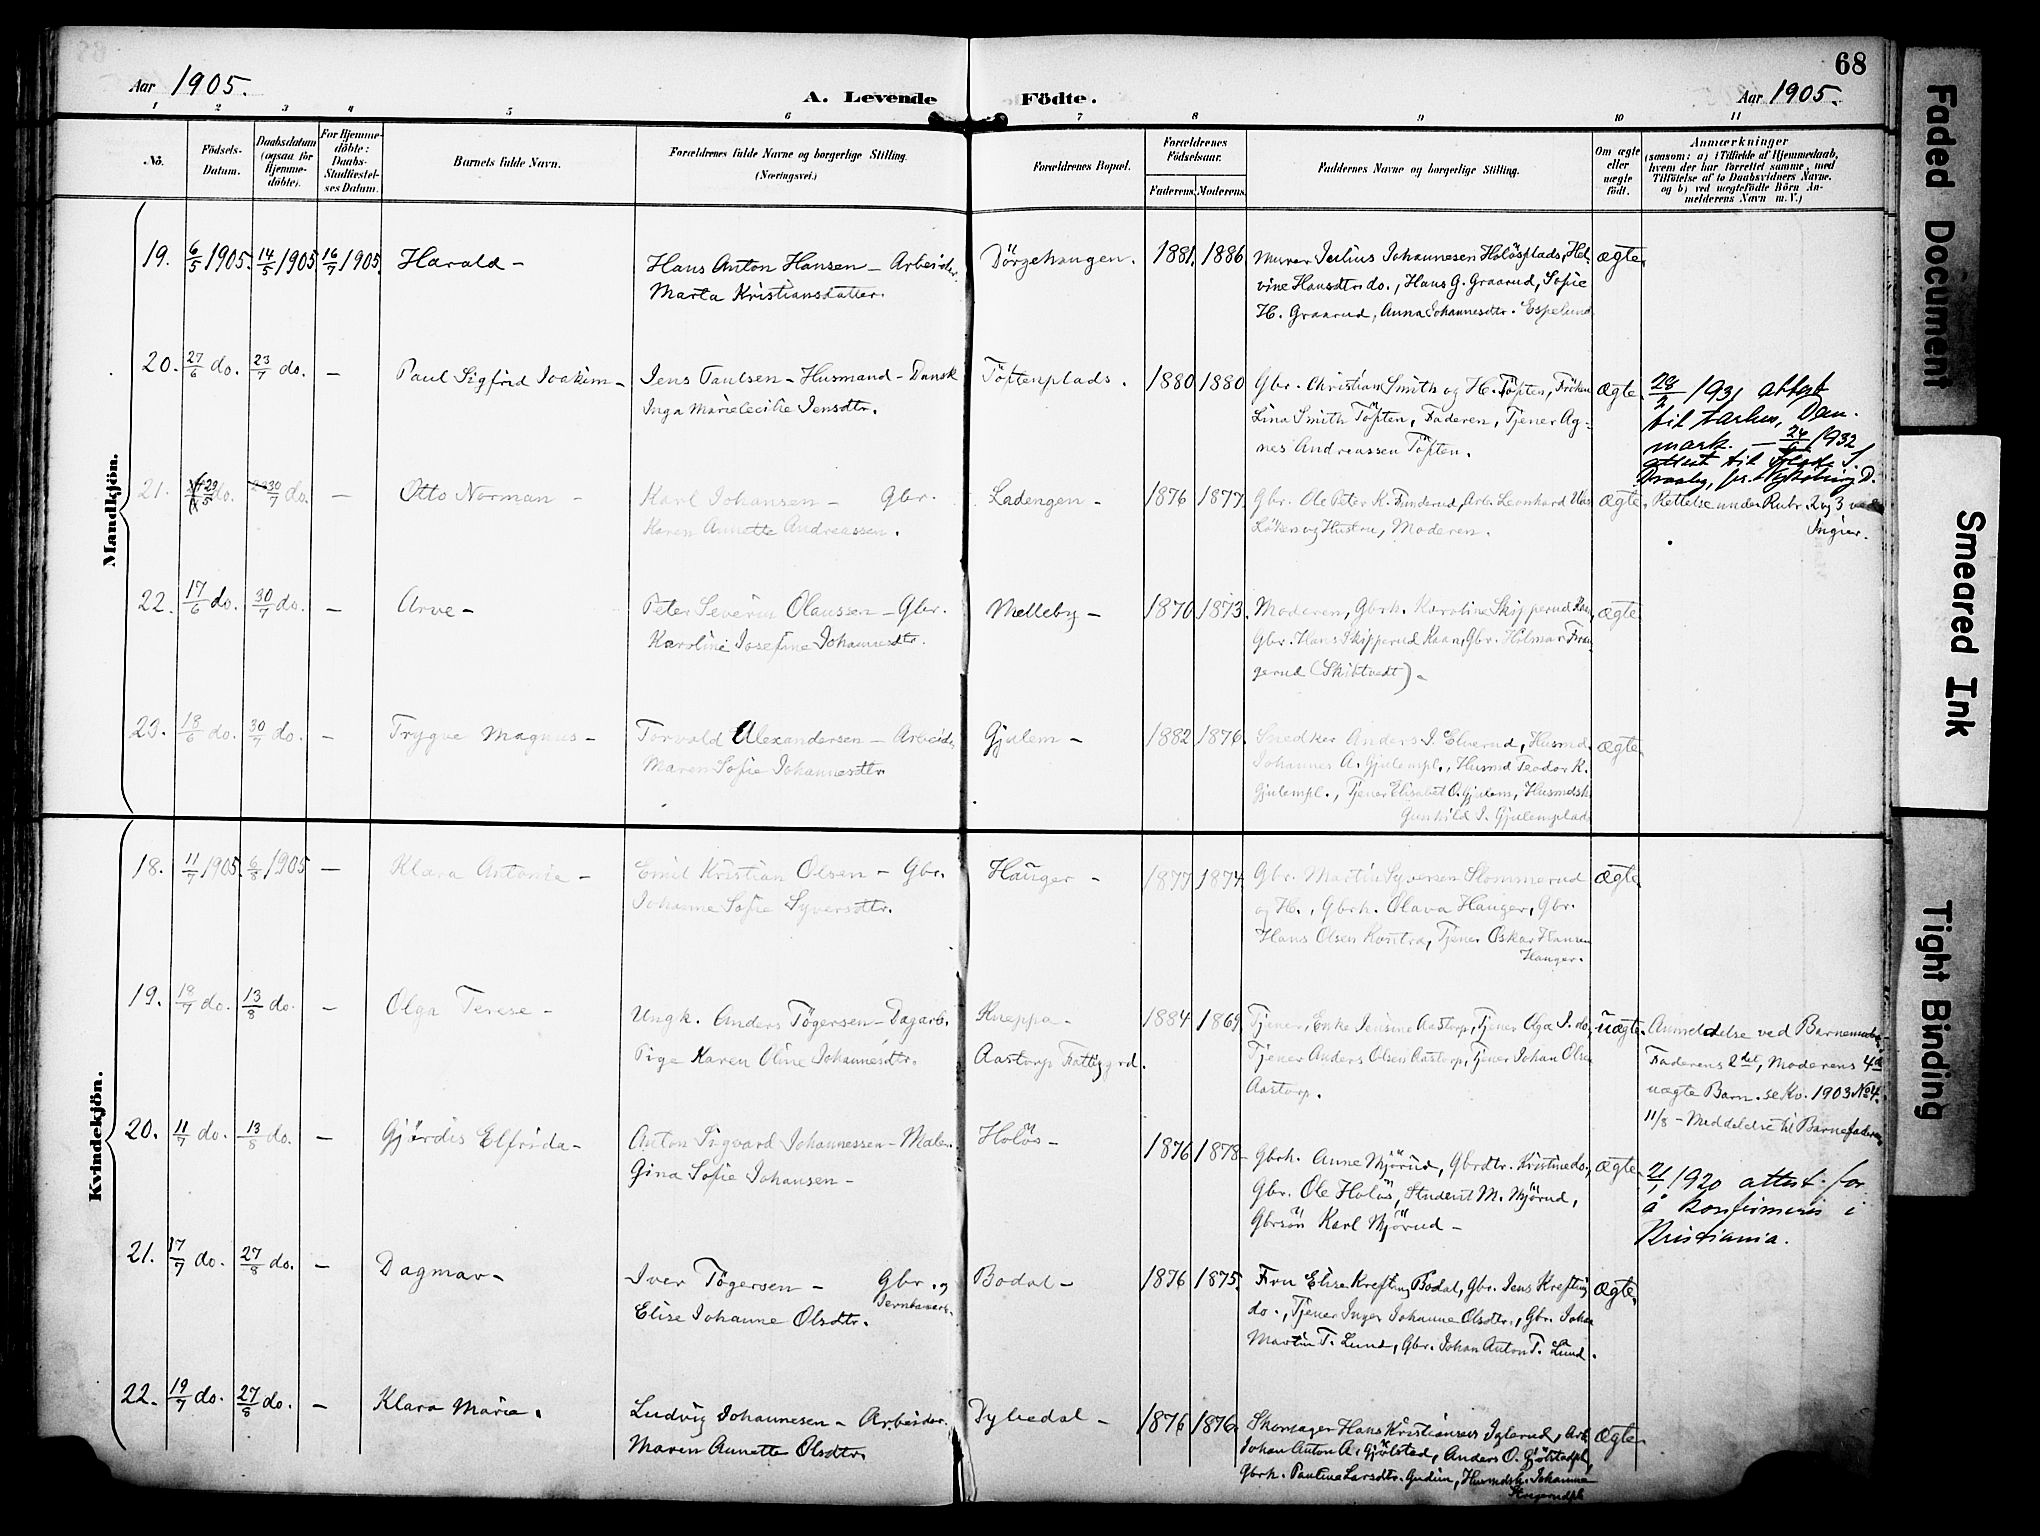 68
Aar 1905.
A. Levende Födte.
Aar 1905.
1 2 3 4 5 6 7 8 9 10 11
No.
Födsels-Datum.
Daabsdatum (ogsaa for Hjemme-döbte).
For Hjemme-döbte: Daabs-Stadfæstel-ses Datum.
Barnets fulde Navn.
Forældrenes fulde Navne og borgerlige Stilling.
(Næringsvei.)
Forældrenes Bopæl.
Forældrenes Födselsaar.
Faderens. Moderens.
Faddernes Navne og borgerlige Stilling.
Om ægte eller uægte födt.
Anmærkninger
(saasom: a) i Tilfælde af Hjemmedaab,
hvem der har forrettet samme, med
Tilföielse af to Daabsvidners Navne.
og b) ved uægtefödte Börn An-
melderens Navn m. V.)
Mandkjön.
19. 6/5 1905. 14/5 1905 16/7 1905. Harald - Hans Anton Hansen - Arbeider Dörgehaugen. 1881. 1886 Murer Julius Johannesen Holösplads, Hel- ægte.
Marta Kristiansdatter. vine Hansdtr. do., Hans G. Graarud, Sofie
H. Graarud, Anna Johannesdtr. Espelund
20. 27/6 do. 23/7 do. - Paul Sigfrid Joakim - Jens Paulsen - Husmand - Dansk Töftenplads. 1880 1880 Gbr. Christian Smith og H. Töften, Fröken ægte. 28/2 1931 attest
Inga Marie Cecilie Jensdtr. Lina Smith Töften, Faderen, Tjener Ag- til Aarhus, Dan-
nes Andreassen Töften. mark. - 1932
attest til
21. 29/5 do. 30/7 do. - Otto Norman - Karl Johansen - Gbr. Ladengen - 1876 1877. Gbr. Ole Peter K. Funderud, Arb. Lernhard ægte. Rettelse under Rubr. 2 og 3 ved
Karen Annette Andreassen. Löken og Hustru, Moderen. Ingier.
22. 17/6 do. 30/7 do. - Arve - Peter Severin Olaussen - Gbr. Melleby - 1870 1873. Moderen, Gbrh. Karoline Skipperud Kaan, ægte.
Karoline Josefine Johannesdtr. Gbr. Hans Skipperud Kaan, Gbr. Hilmar Fran-
gerud (Skibtvedt).
23. 18/6 do. 30/7 do. - Trygve Magnus - Torvald Alexandersen - Arbeider Gjulem - 1882 1876. Snedker Anders J. Elverud, Husmd. ægte.
Maren Sofie Johannesdtr. Johannes A. Gjulempl., Husmd Teodor K.
Gjulempl., Tjener Elisabet O. Gjulem, Husmdsk.
Gunhild J. Gjulemplads
Kvindekjön.
18. 11/7 1905. 6/8 1905 - Klara Antonie - Emil Kristian Olsen - Gbr. Hauger - 1877 1874. Gbr. Martin Syversen Slommerud ægte.
Johanne Sofie Syversdtr. og H., Gbrh. Olava Hauger, Gbr.
Hans Olsen Kontra, Tjener Oskar Hansen
Hauger.
19. 18/7 do. 13/8 do. - Olga Terese - Ungk. Anders Tögersen - Dagarb. Kneppa - 1884 1869. Tjener, Enke Jensine Aastorp, Tjener Olga J. do, uægte. Anmeldelse ved Barnemoder.
Pige Karen Oline Johannesdtr. Aastorp Fattiggrd. Tjener Anders Olsen Aastorp, Tjener Johan Olsen Faderens 2det, Moderens 4de
Aastorp. uægte Barn. se Kv. 1903 No 4.
11/8 - Meddelelse til Barnefaderen
20. 11/7 do. 13/8 do. - Gjördis Elfrida - Anton Sigvard Johannessen - Maler Holös - 1876 1878 - Gbrh. Anne Mjörud, Gbrdtr. Kristine do., ægte.
Gina Sofie Johansen - Gbr. Ole Holös, Student M. Mjörud, 21/1 1920 attest for
Gbrsön Karl Mjörud - å konfirmeres i
Kristiania.
21. 17/7 do. 27/8 do. - Dagmar - Iver Tögersen - Gbr. og Bodal - 1876 1875. Fru Elise Krefting Bodal, Gbr. Jens Krefting ægte.
Jernbanearb. Elise Johanne Olsdtr. do., Tjener Inger Johanne Olsdtr., Gbr. Johan
Martin T. Lund, Gbr. Johan Anton T. Lund.
22. 19/7 do. 27/8 do. - Klara Marie. Ludvig Johannesen - Arbeider. Dybedal - 1876 1876. Skomager Hans Kristiansen Iglerud, Arb. ægte.
Maren Annette Olsdtr. Johan Anton A. Gjölstad, Anders O. Gjölstadpl.,
Gbrh. Pauline Larsdtr. Gudim, Husmdsk. Johanne
Faded Document
Smeared Ink
Tight Binding